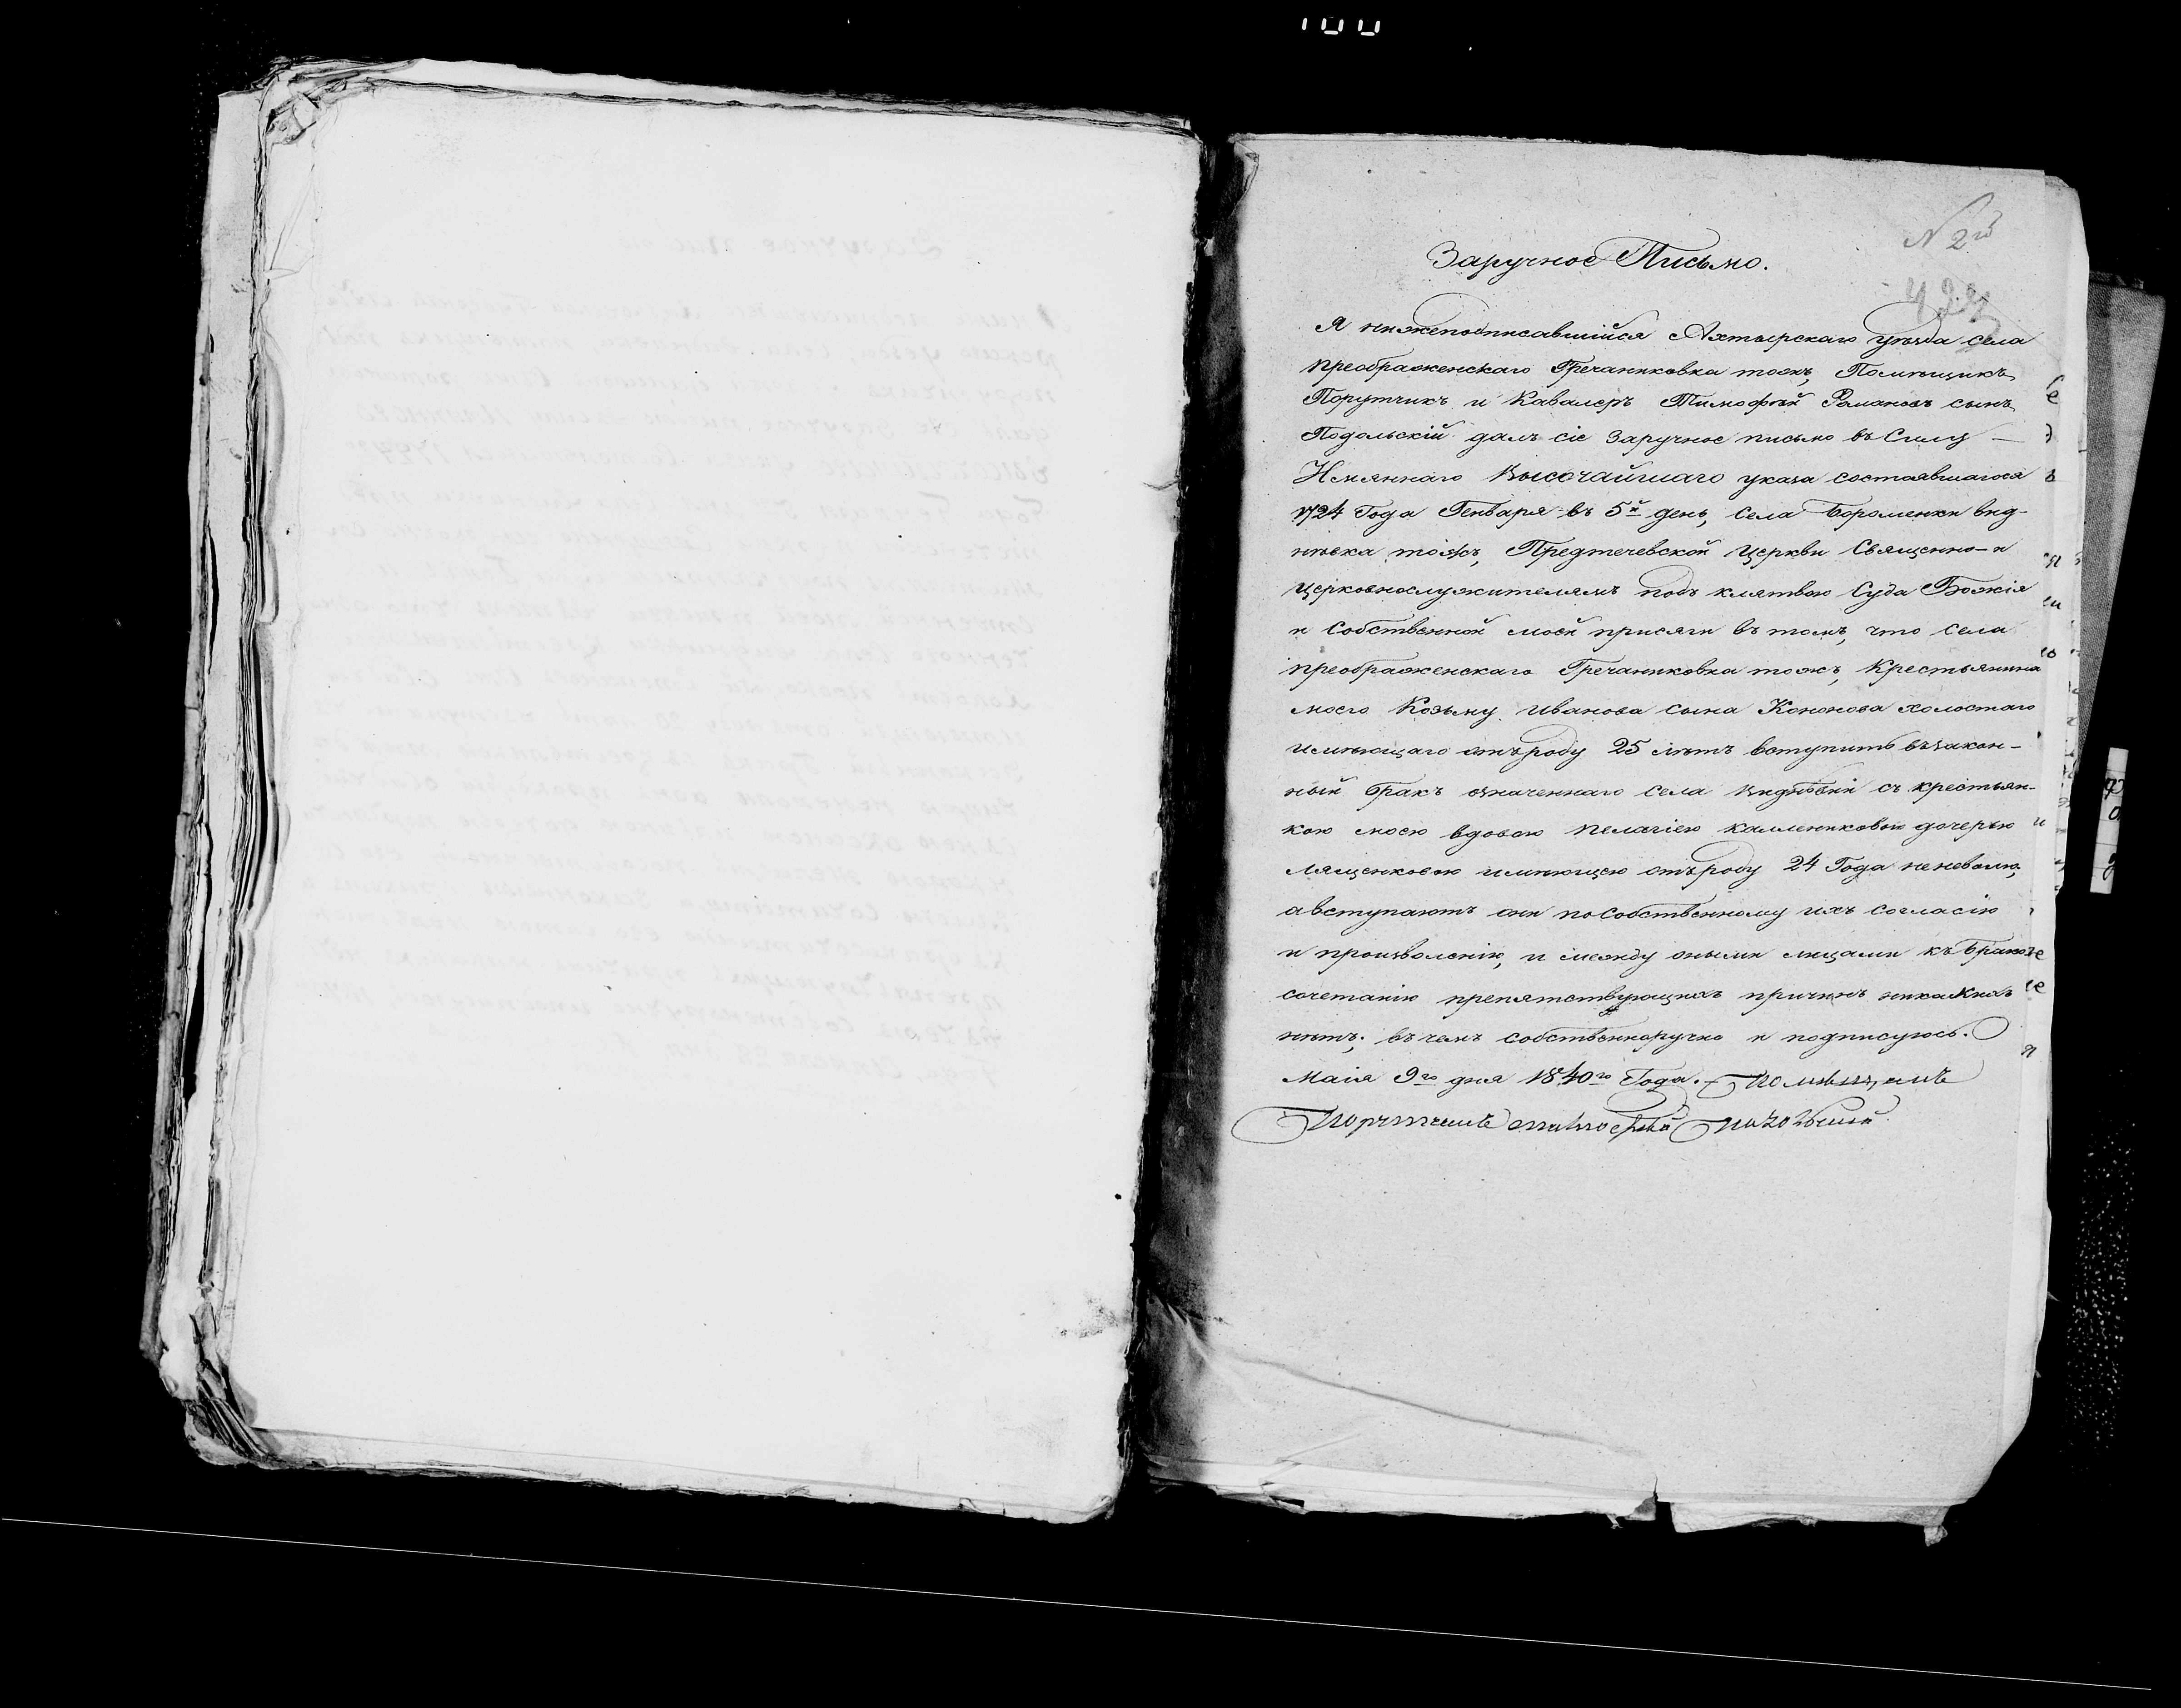 N 2й
Заручное Письмо.
Я нижеподписавшійся Ахтырскаго уѣзда села
преображенскаго Гречаниковка тожъ, Помѣщикъ
Порутчикъ и Кавалеръ Тимофѣй Романовъ сынъ
Подольскій далъ сіе заручное письмо въ Силу —
Имяннаго Высочайшаго указа состоявшагося
1724 Года Генваря въ 5й день, села Бороменки
тожъ, Предтечевской Церкви Священно- и
Церковнослужителямъ подъ клятвою Суда Божія
и Собственной моей присяги въ томъ, что села
преображенскаго Гречаниковка тожъ, Крестьянина
моего Козьму Иванова сына Кононова холостаго
имѣющаго отъ роду 25 лѣтъ вступить въ закон-
ный бракъ означеннаго села съ крестьян-
кою моею вдовою Пелагіею каллениковой дочерью
Лященковою имѣющею отъ роду 24 Года не неволю,
а вступаютъ они по Собственному ихъ согласію
и произволенію, и между оными лицами къ Брако-
сочетанію препятствующихъ причинъ никакихъ
нѣтъ; въ чемъ собственноручно и подписуюсь.
Маія 9го дня 1840го Года. – Помѣщикъ
Порутчикъ тимофѣй Подольский